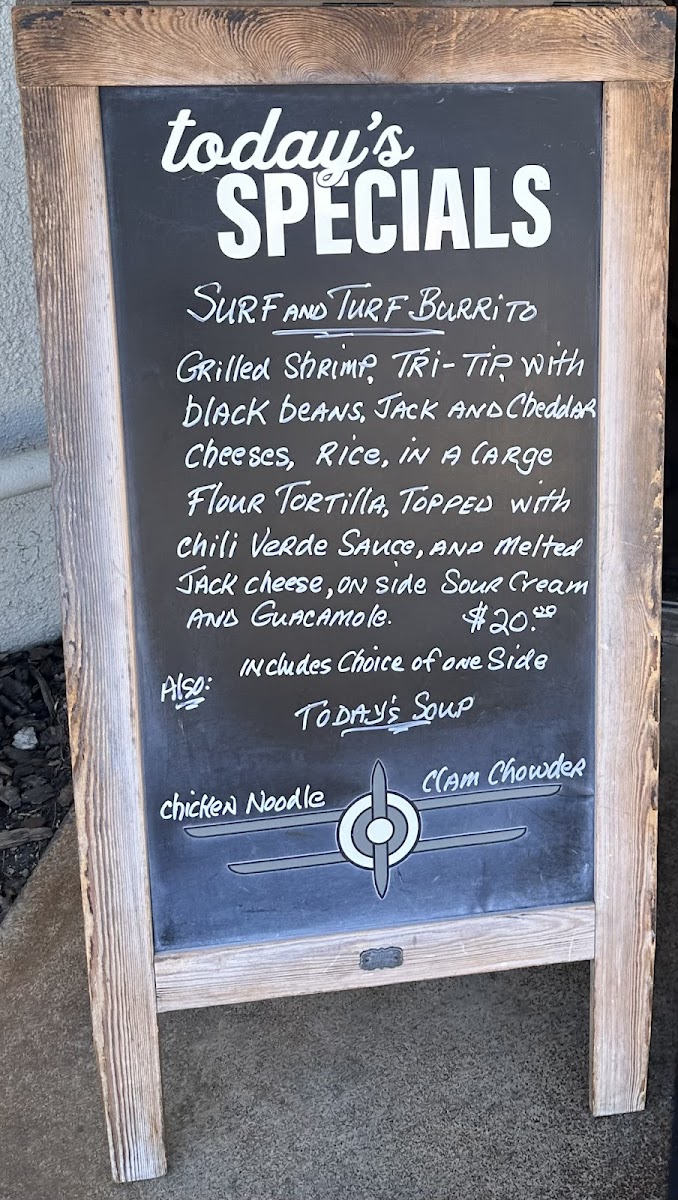 today's
SPECIALS
SURF AND TURF BURRiTO
GRilled ShRimp, TRi-Tip, with
black beans, Jack and Cheddar
cheeses, Rice, in a large
Flour Tortilla, Topped with
chili Verde Sauce, and melted
Jack cheese, on side Sour Cream
and Guacamole. $20.00
includes Choice of one Side
Also:
Today's Soup
Clam Chowder
Chicken Noodle